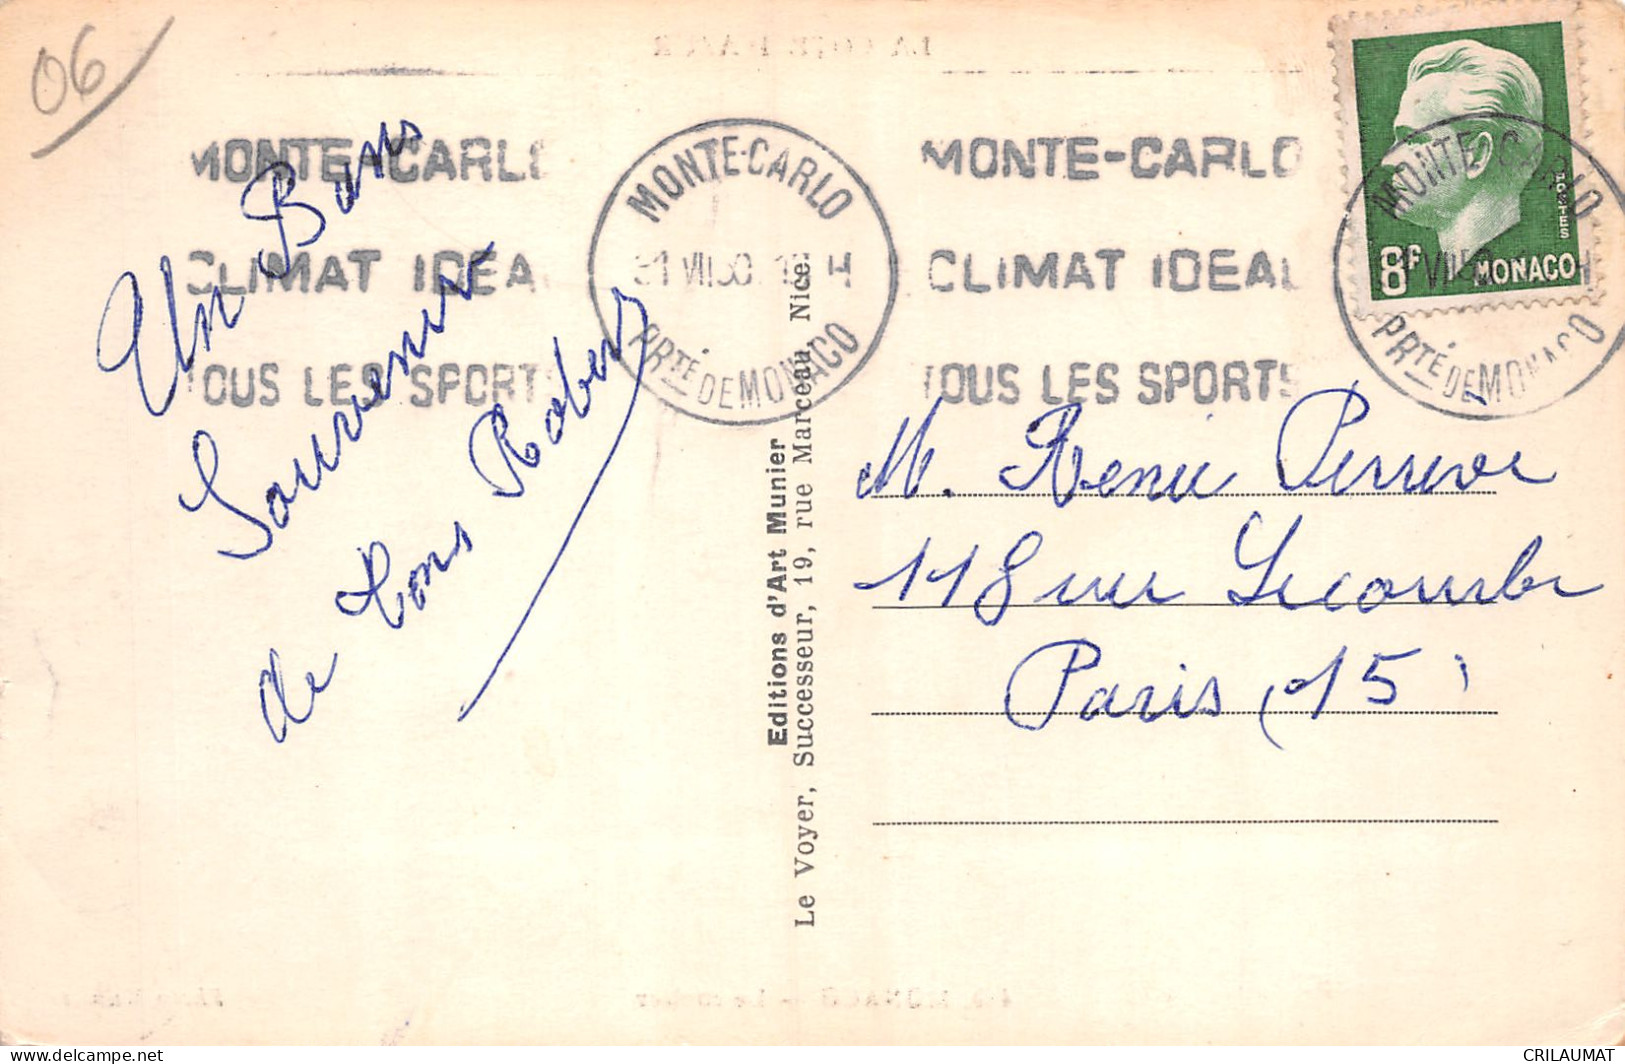 06
MONTE-CARLO
CLIMAT IDEAL
TOUS LES SPORTS
MONTE-CARLO
PRTÉ DE MONACO
MONTE-CARLO
CLIMAT IDEAL
TOUS LES SPORTS
MONTE-CARLO
PRTÉ DE MONACO
POSTES
8F MONACO
Un Bons
Souvenir
de Robert
Editions d'Art Munier
Le Voyer, Successeur, 19, rue Marceau, Nice.
M. Renée
118 rue Lecourbe
Paris (15)
CRILAUMAT